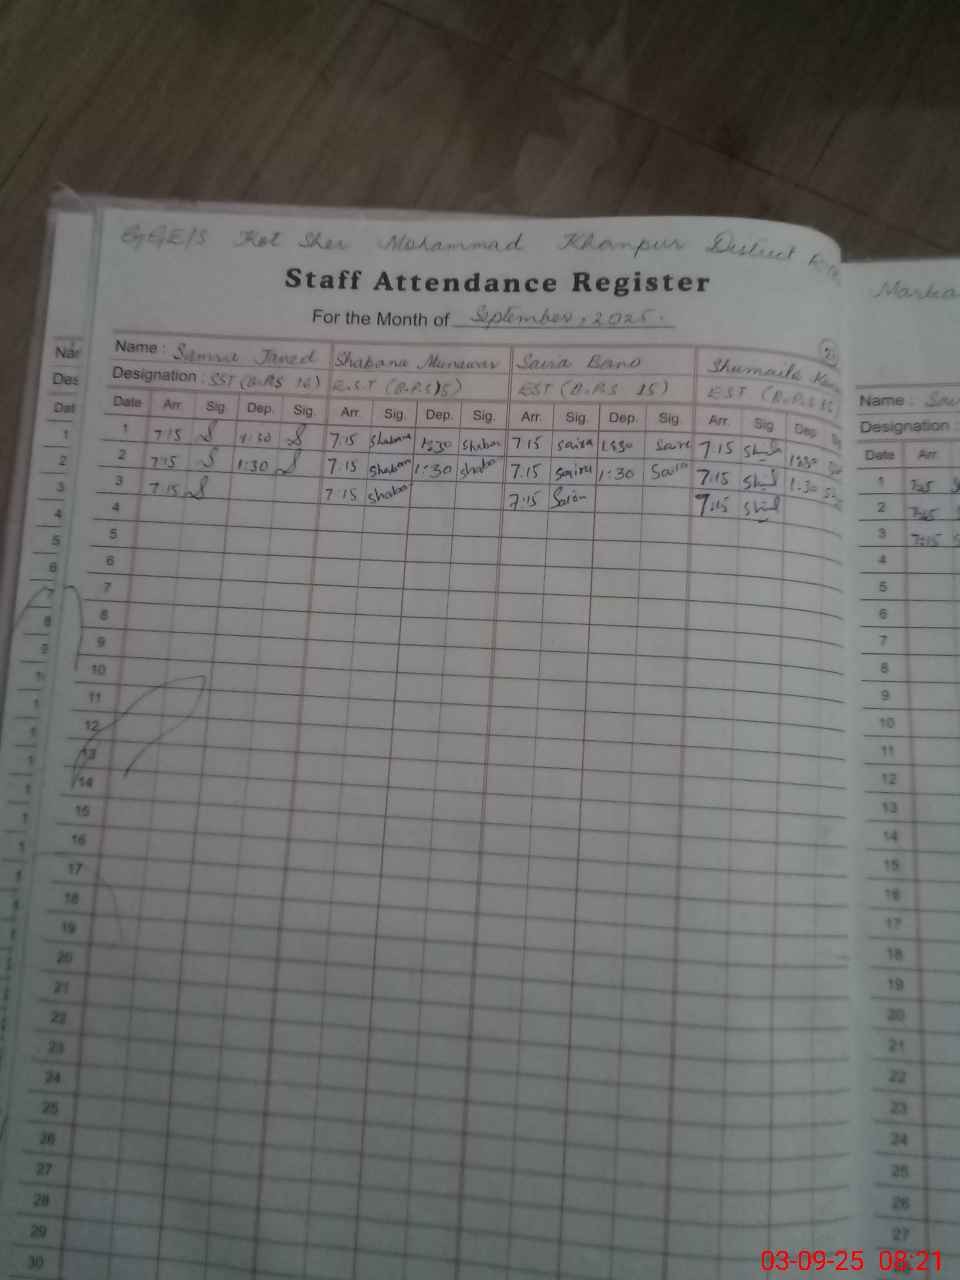 GGE/S Kot Sher Mohammad Khanpur District
Staff Attendance Register
For the Month of September, 2025.
Name : Samra Javed Shabana Munawar Saira Bano Shumaila
Designation : SST (B.P.S 16) E.S.T (B.P.S 15) EST (B.P.S 15) EST (B.P.S 15)
Date Arr. Sig. Dep. Sig. Arr. Sig. Dep. Sig. Arr. Sig. Dep. Sig. Arr. Sig Dep
1 7:15 S 1:30 S 7:15 Shabana 1:30 Shaban 7:15 Saira 1:30 Saira 7:15 1:30
2 7:15 S 1:30 S 7:15 Shaban 1:30 Shaba 7:15 Saira 1:30 Saira 7:15 1:30
3 7:15 S 7:15 Shaban 7:15 Saira 7:15
4
5
6
7
8
9
10
11
12
13
14
15
16
17
18
19
20
21
22
23
24
25
26
27
28
29
30
Nar
Des
Dat
1
2
3
4
5
6
7
8
Name :
Designation :
Date Arr.
1 7:15
2 7:15
3 7:15
4
5
6
7
8
9
10
11
12
13
14
15
16
17
18
19
20
21
22
23
24
25
26
27
03-09-25 08:21